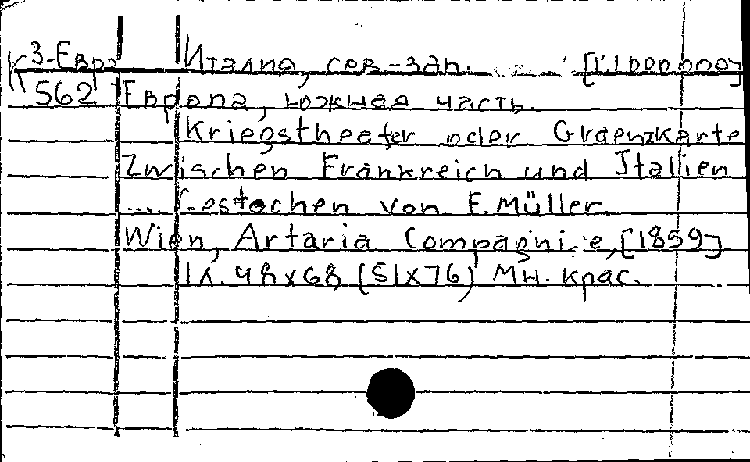 К 3-Евр Италия, сев-зап. [1:1000000]
562 Европа, южная часть.
Kriegstheater oder Graenzkarte
Zwischen Frankreich und Italien
... Gestochen von F. Müller.
Wien, Artaria Compagnie, [1859]
1л. 48x68 (51x76) Мн. крас.